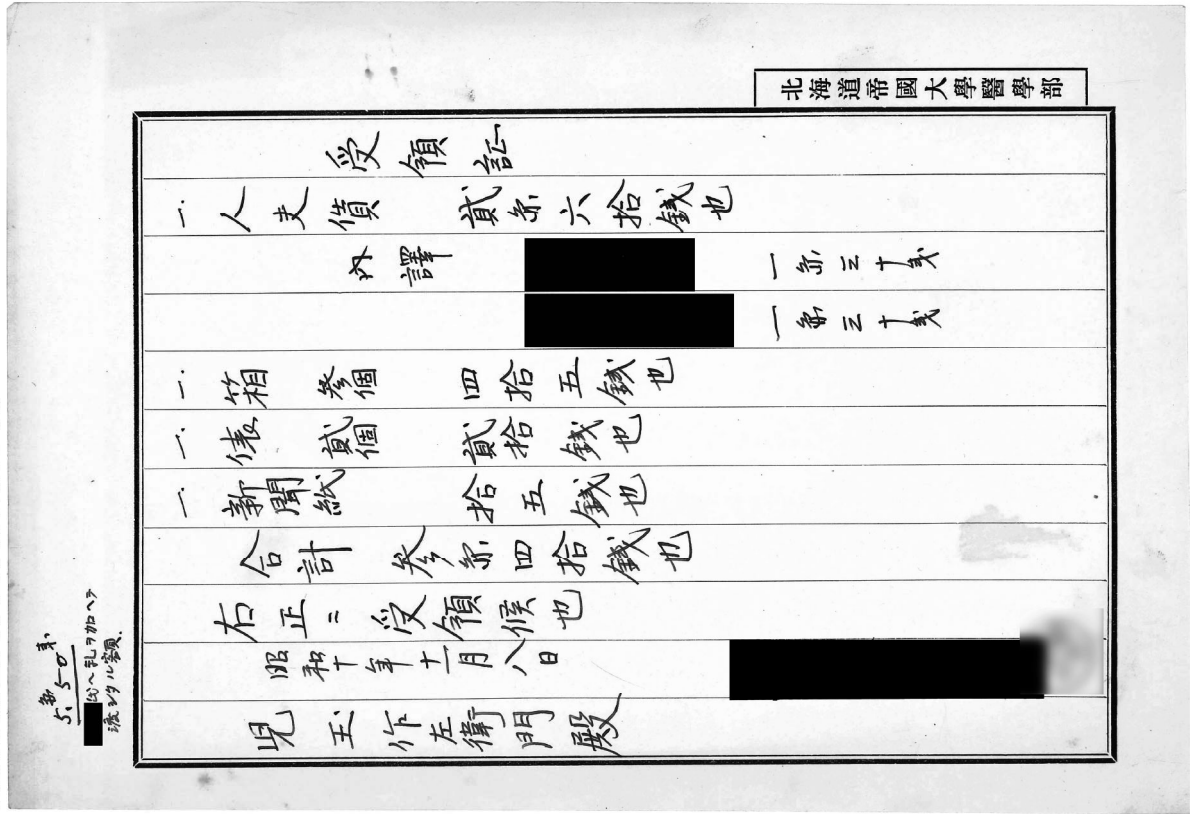 北海道帝國大學醫學部
受領証
一、人夫賃 貳円六拾錢也
内譯 一円三十戋
一円三十戋
一、箱 参個 四拾五錢也
一、俵 貳個 貳拾錢也
一、新聞紙 拾五錢也
合計 参円四拾錢也
右正ニ受領候也
昭和十年十一月八日
児玉作左衛門殿
5.50
氏ヘ礼ヲ加ヘテ
渡シタル額、